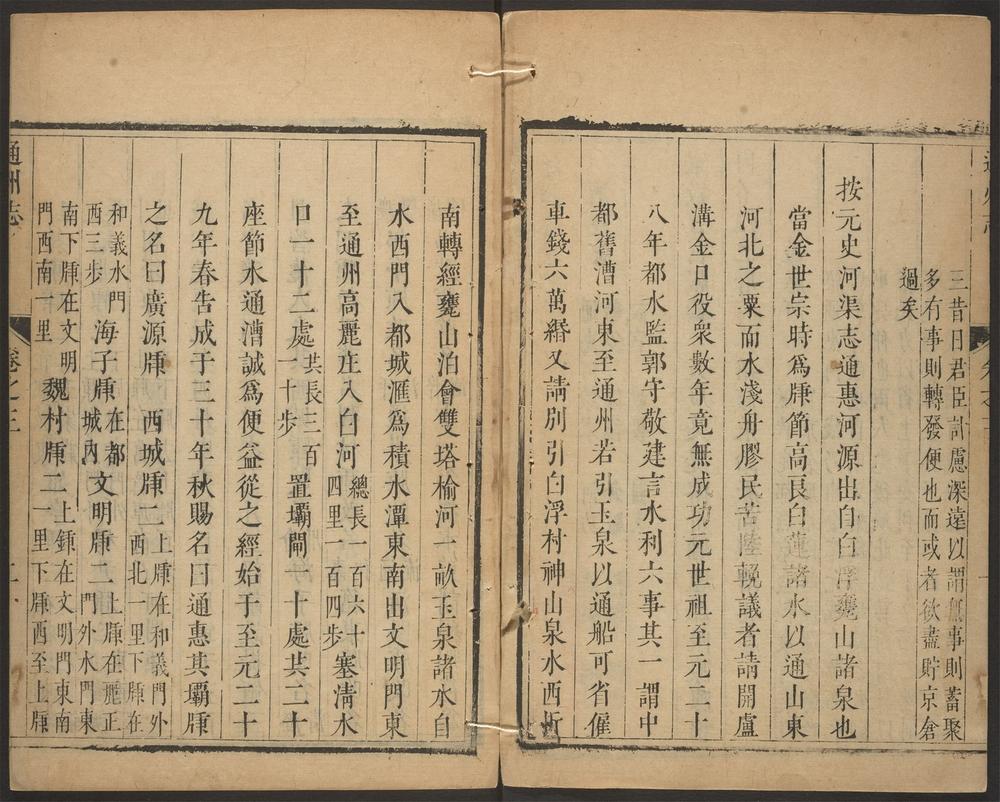 三昔日君臣計慮深遠以謂無事則蓄聚
多有事則轉發便也而或者欲盡貯京倉
過矣
按元史河渠志通惠河源出白白浮甕山諸泉也
當金世宗時爲牐節高良白蓮諸水以通山東
河北之粟而水淺舟膠民苦陸輓議者請開盧
溝金口役衆數年竟無成功元世祖至元二十
八年都水監郭守敬建言水利六事其一謂中
都舊漕河東至通州若引玉泉以通船可省僱
車錢六萬緡又請別引白浮村神山泉水西折
南轉經甕山泊會雙塔榆河一畝玉泉諸水自
水西門入都城滙爲積水潭東南出文明門東
至通州高麗庄入白河
總長一百六十
四里一百四步
塞淸水
口一十二處
共長三百
一十步
置壩閘一十處共二十
座節水通漕誠爲便益從之經始于至元二十
九年春告成于三十年秋賜名曰通惠其壩牐
之名曰廣源牐 西城牐二
上牐在和義門外
西北一里下牐在
和義水門
西三步
海子牐
在都
城內
文明牐二
上牐在麗正
門外水門東
南下牐在文明
門西南一里
魏村牐二
上鍾在文明門東南
一里下牐西至上牐
通州志
卷之三